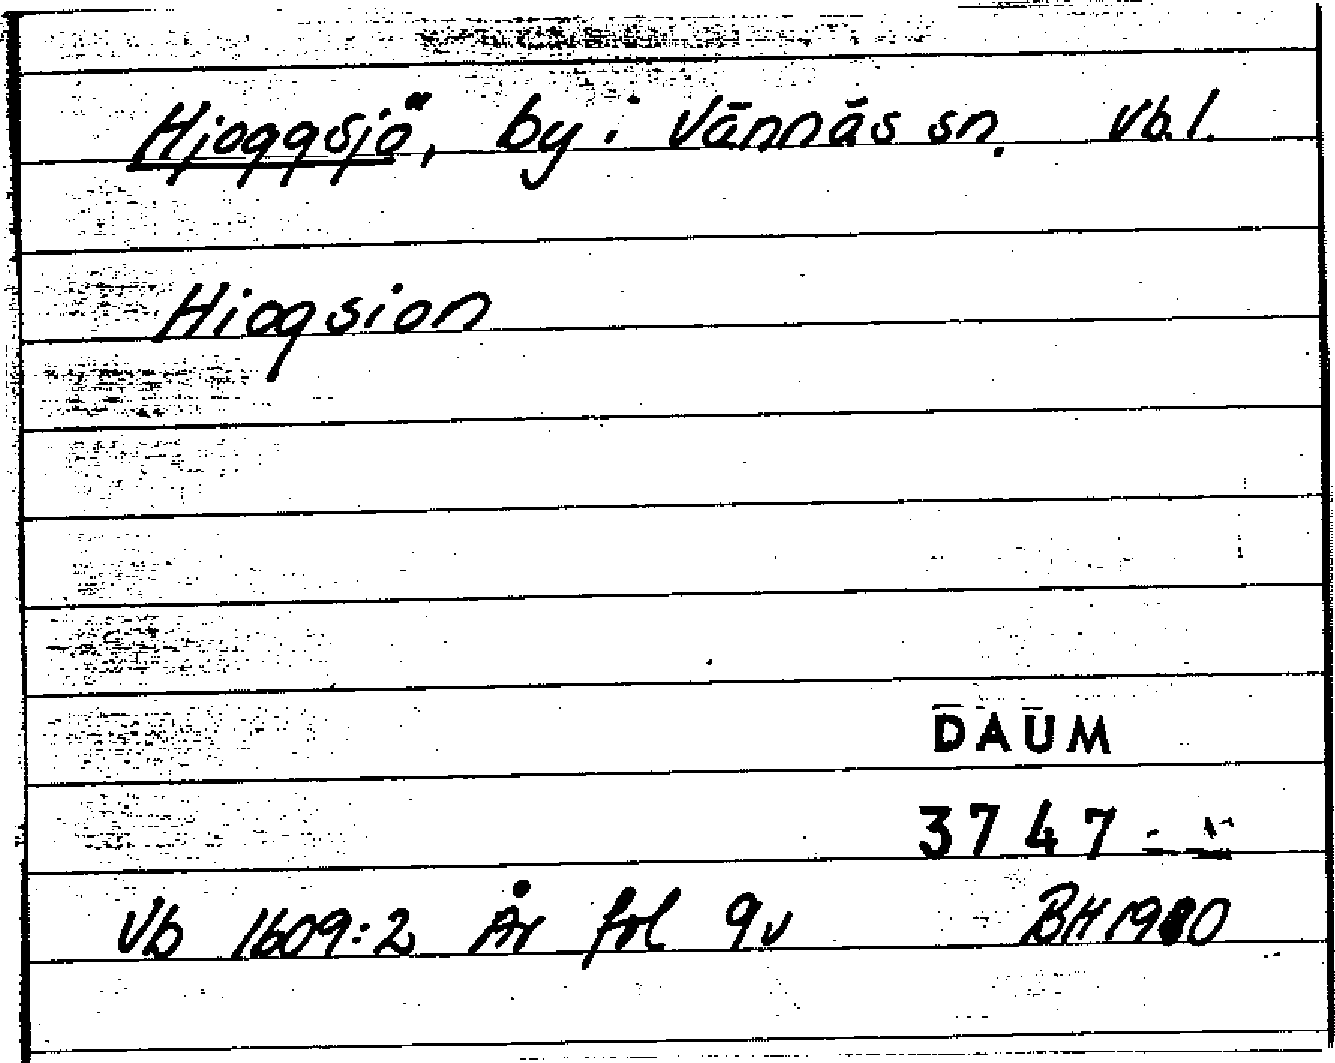 Hjoggsjö, by i Vännäs sn. Vb.l.
Hiogsion
DAUM
3747
Vb 1609:2 År fol 9v BH 1980